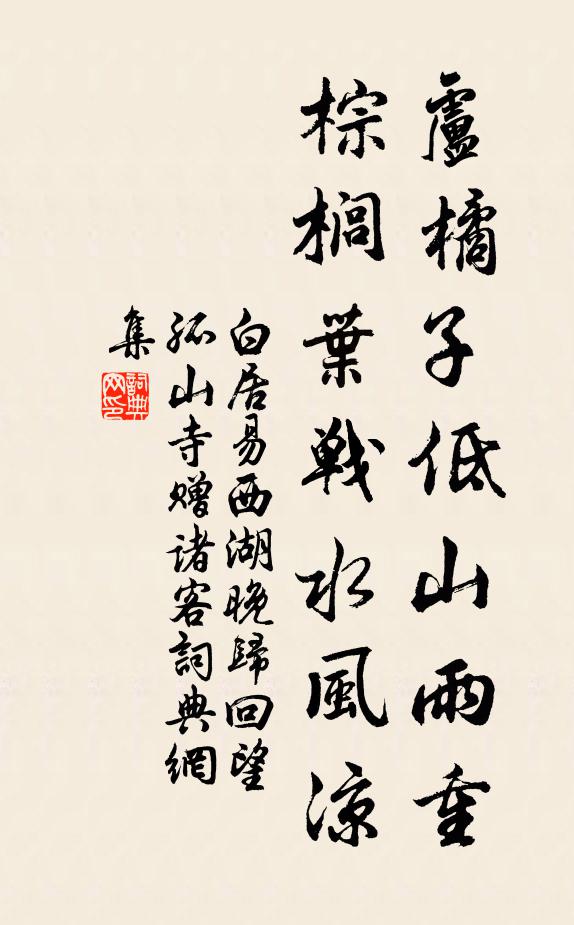 盧橘子低山雨重
棕櫚葉戰水風涼
白居易西湖晚歸回望
孤山寺贈諸客詞典網
集
詞典
网印